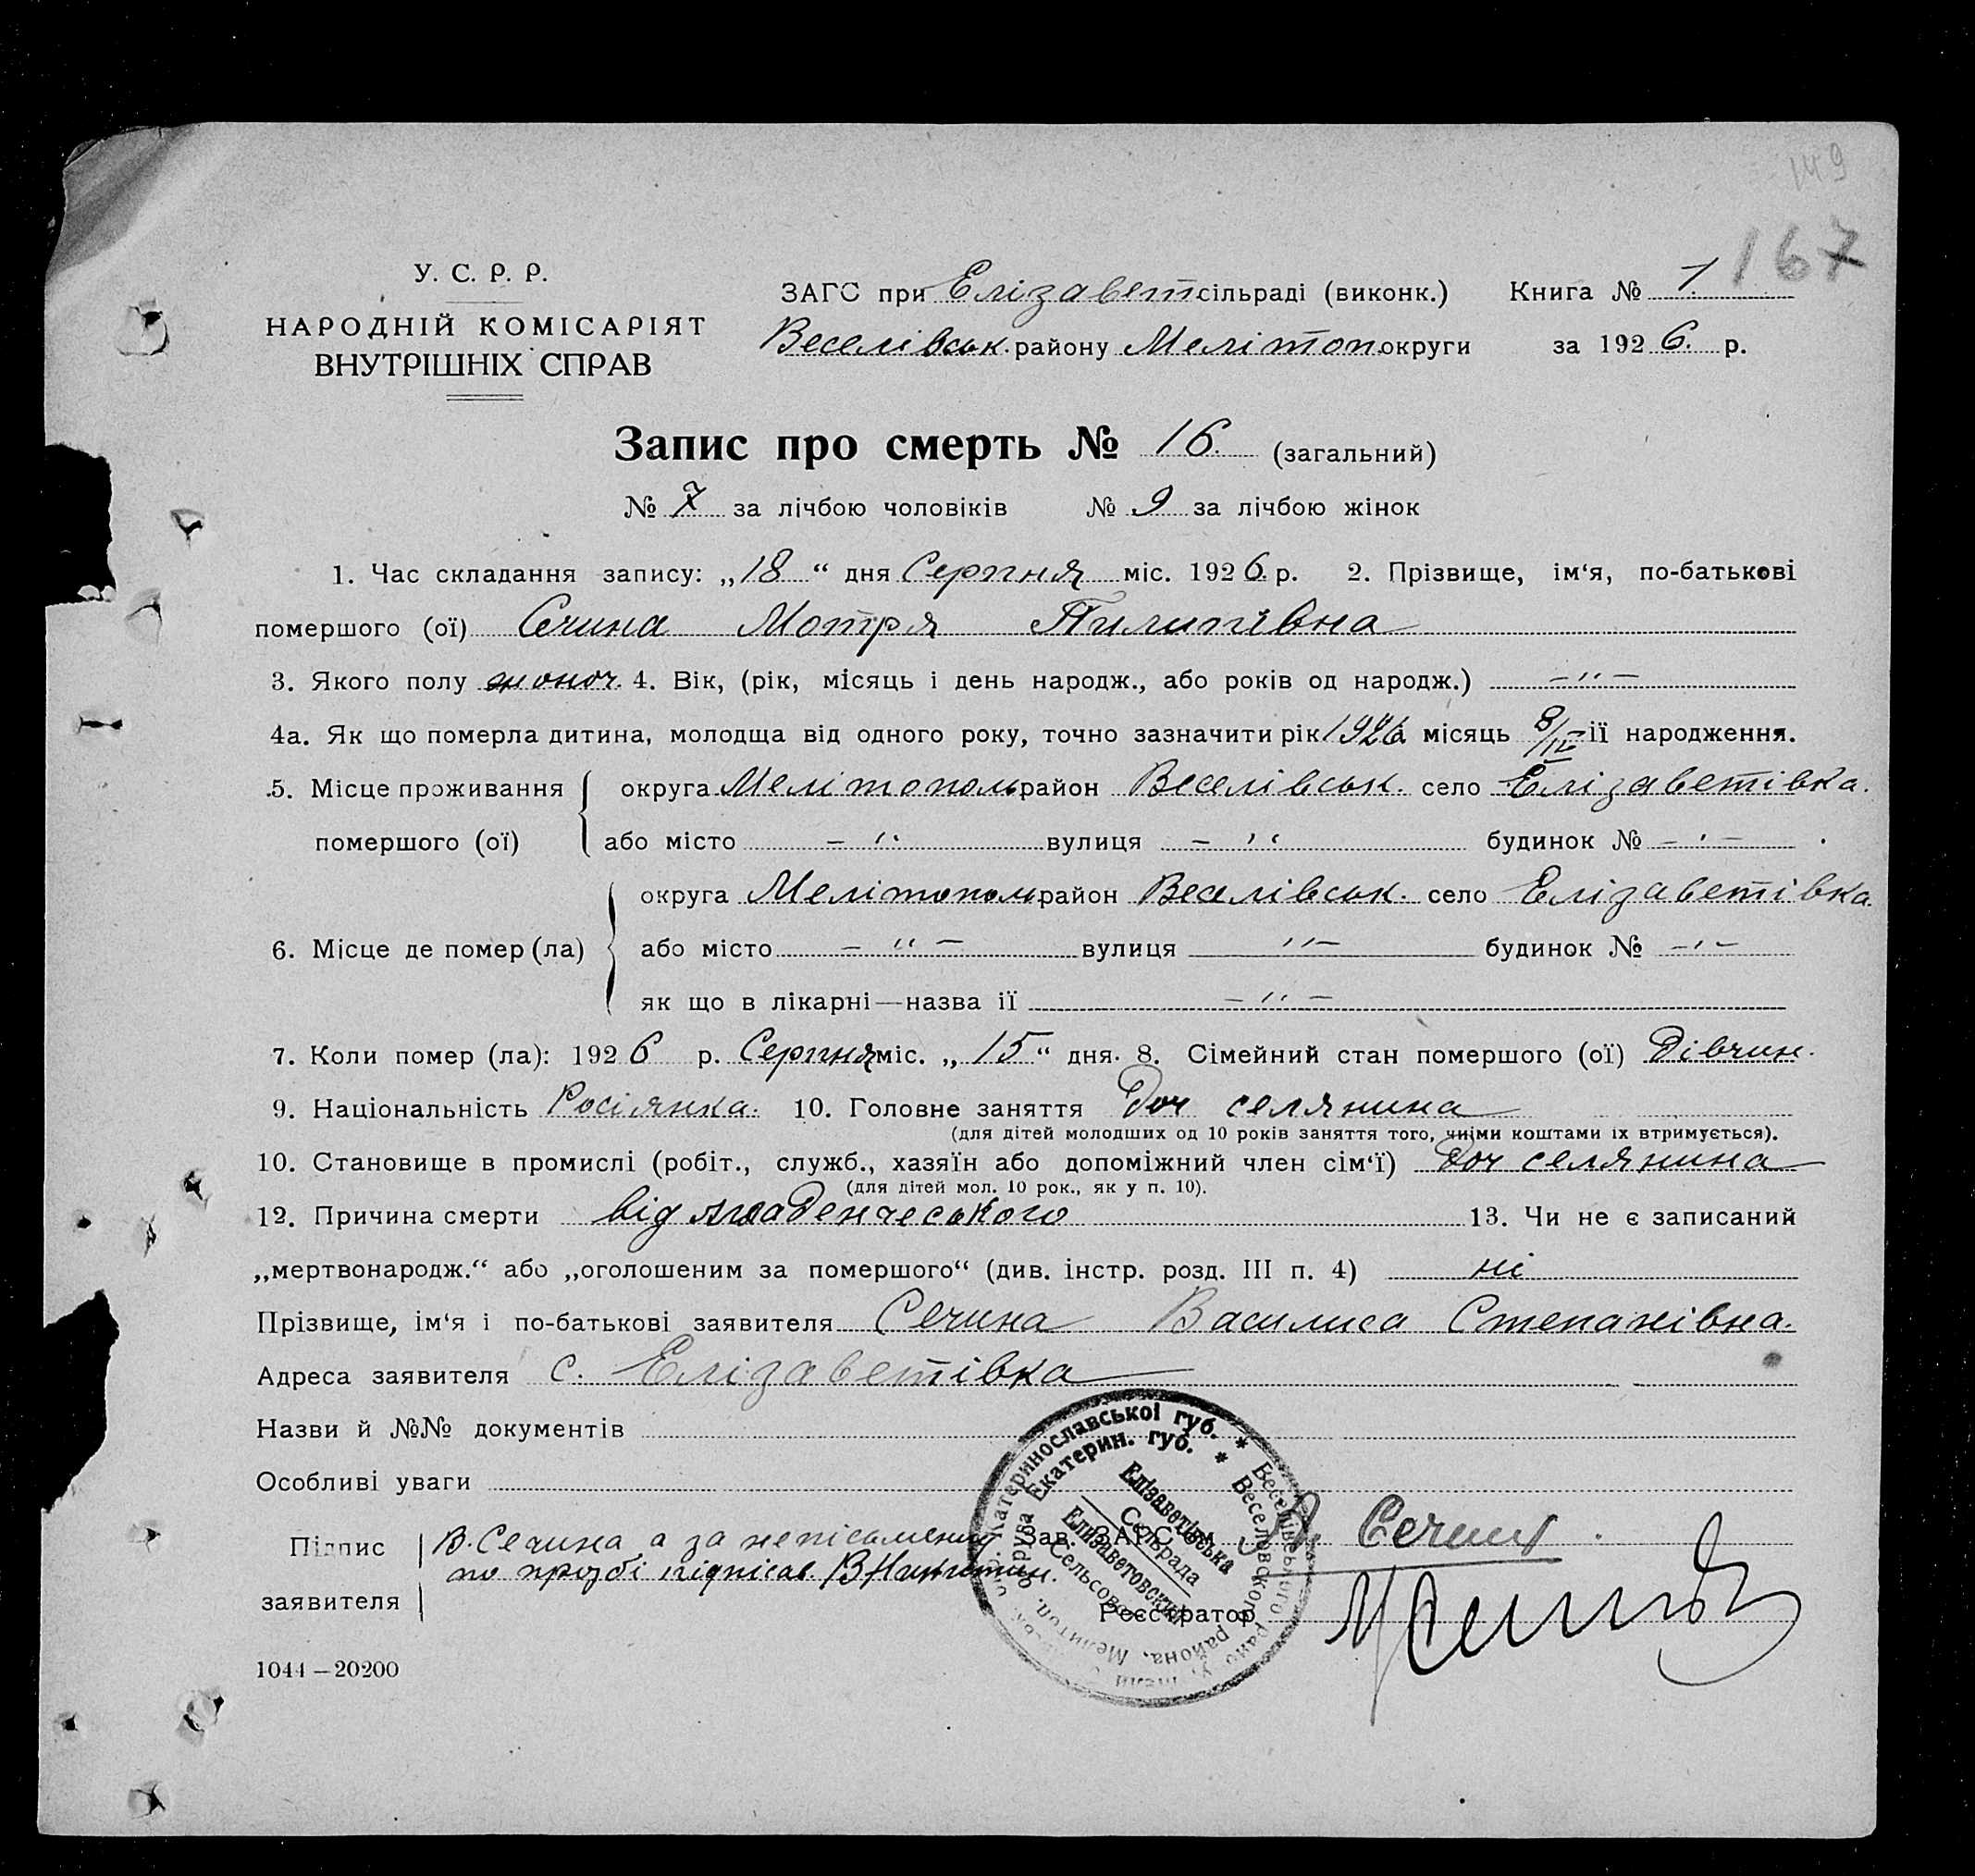 149
167
У. С. Р. Р.
НАРОДНІЙ КОМІСАРІЯТ
ВНУТРІШНІХ СПРАВ
ЗАГС при Елізавет сільраді (виконк.) Книга № 1.
Веселівськ. району Мелітоп округи за 1926. р.
Запис про смерть № 16. (загальний)
№ 7 за лічбою чоловіків № 9 за лічбою жінок
1. Час складання запису: „18“ дня Серпня міс. 1926. р. 2. Прізвище, ім‘я, по-батькові
помершого (ої) Сечина Мотря Пилипівна
3. Якого полу жоноч. 4. Вік, (рік, місяць і день народж., або років од народж.) – " –
4а. Як що померла дитина, молодща від одного року, точно зазначити рік 1926 місяць 8/IV її народження.
5. Місце проживання округа Мелітополь район Веселівськ. село Елізаветівка.
помершого (ої) або місто – " вулиця – " будинок № – " –
округа Мелітополь район Веселівськ. село Елізаветівка.
6. Місце де помер (ла) або місто – " – вулиця " – будинок № – " –
як що в лікарні—назва ії – " –
7. Коли помер (ла): 1926 р. Серпня міс. „15“ дня. 8. Сімейний стан помершого (ої) Дівчин.
9. Національність Росіянка. 10. Головне заняття Доч селянина
(для дітей молодших од 10 років заняття того, чиїми коштами іх втримується).
10. Становище в промислі (робіт., служб., хазяїн або допоміжний член сім‘ї) Доч селянина
(для дітей мол. 10 рок., як у п. 10).
12. Причина смерти від младенческого 13. Чи не є записаний
„мертвонародж.“ або „оголошеним за помершого“ (див. інстр. розд. III п. 4) ні
Прізвище, ім‘я і по-батькові заявителя Сечина Василиса Степанівна.
Адреса заявителя с. Елізаветівка
Назви й №№ документів
Особливі уваги
Підпис В. Сечина а за непісьмений Зав. ЗАГС‘ом Сечин
по прозбі підписав
заявителя Реєстратор
Катеринославської губ. * Веселівського району
Екатерин. губ. * Веселовского района, Мелитоп. округа
Елізаветівська
Сельрада
Елизаветовский
Сельсовет
1044—20200